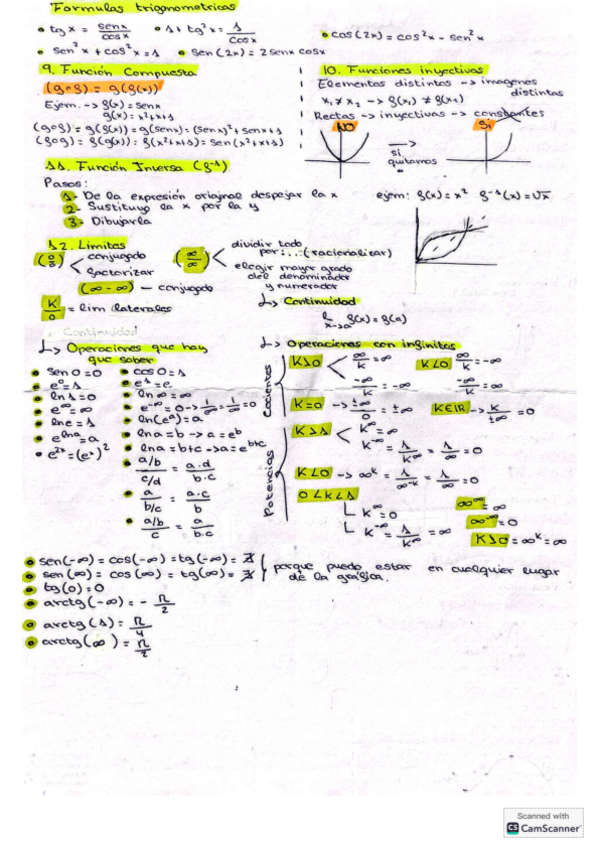 Formulas trigonometricas
• tg x = senx/cosx • 1 + tg²x = 1/cosx • cos(2x) = cos²x - sen²x
• sen²x + cos²x = 1 • sen(2x) = 2senx cosx
9. Función Compuesta
(g∘f) = g(f(x))
Ejem. -> f(x) = senx
g(x) = x²+x+1
(g∘f) = g(f(x)) = g(senx) = (senx)² + senx + 1
(f∘g) = f(g(x)) = f(x²+x+1) = sen(x²+x+1)
10. Funciones inyectivas
Elementos distintos -> imagenes distintas
x₁ ≠ x₂ -> f(x₁) ≠ f(x₂)
Rectas -> inyectivas -> constantes
NO Si
si quitamos
11. Función Inversa (f⁻¹)
Pasos:
1- De la expresión original despejar la x
2- Sustituyo la x por la y
3- Dibujarla
ejem: f(x) = x² f⁻¹(x) = √x
12. Limites
(0/0) < conjugado
factorizar
(∞/∞) < dividir todo por: ... (racionalizar)
elegir mayor grado del denominador y numerador
(∞ - ∞) — conjugado
K/0 = lim laterales
↳ Continuidad
f(x) = f(a)
. Continuidad
↳ Operaciones que hay que saber
• sen 0 = 0
• e⁰ = 1
• ln 1 = 0
• e^∞ = ∞
• ln e = 1
• e^lna = a
• e^2x = (e^x)²
• cos 0 = 1
• e¹ = e
• ln ∞ = ∞
• e^-∞ = 0 -> 1/e^∞ = 1/∞ = 0
• ln(e^a) = a
• lna = b -> a = e^b
• lna = b+c -> a = e^b+c
• a/b / c/d = a.d / b.c
• a / b/c = a.c / b
• a/b / c = a / b.c
↳ Operaciones con infinitos
Cocientes
K>0 < ∞/K = ∞
-∞/K = -∞
K<0 ∞/K = -∞
-∞/K = ∞
K=0 -> ±∞/0 = ±∞ K∈IR -> K/±∞ = 0
Potencias
K>1 < K^∞ = ∞
K^-∞ = 1/K^∞ = 1/∞ = 0
K<0 -> ∞^K = 1/∞^-K = 1/∞ = 0
0<K<1
K^∞ = 0
K^-∞ = 1/K^∞ = ∞
∞^∞ = ∞
∞^-∞ = 0
K>0 = ∞^K = ∞
• sen(-∞) = cos(-∞) = tg(-∞) = ∄
• sen(∞) = cos(∞) = tg(∞) = ∄
porque puedo estar en cualquier lugar de la gráfica.
• tg(0) = 0
• arctg(-∞) = - π/2
• arctg(1) = π/4
• arctg(∞) = π/2
Scanned with
CS CamScanner